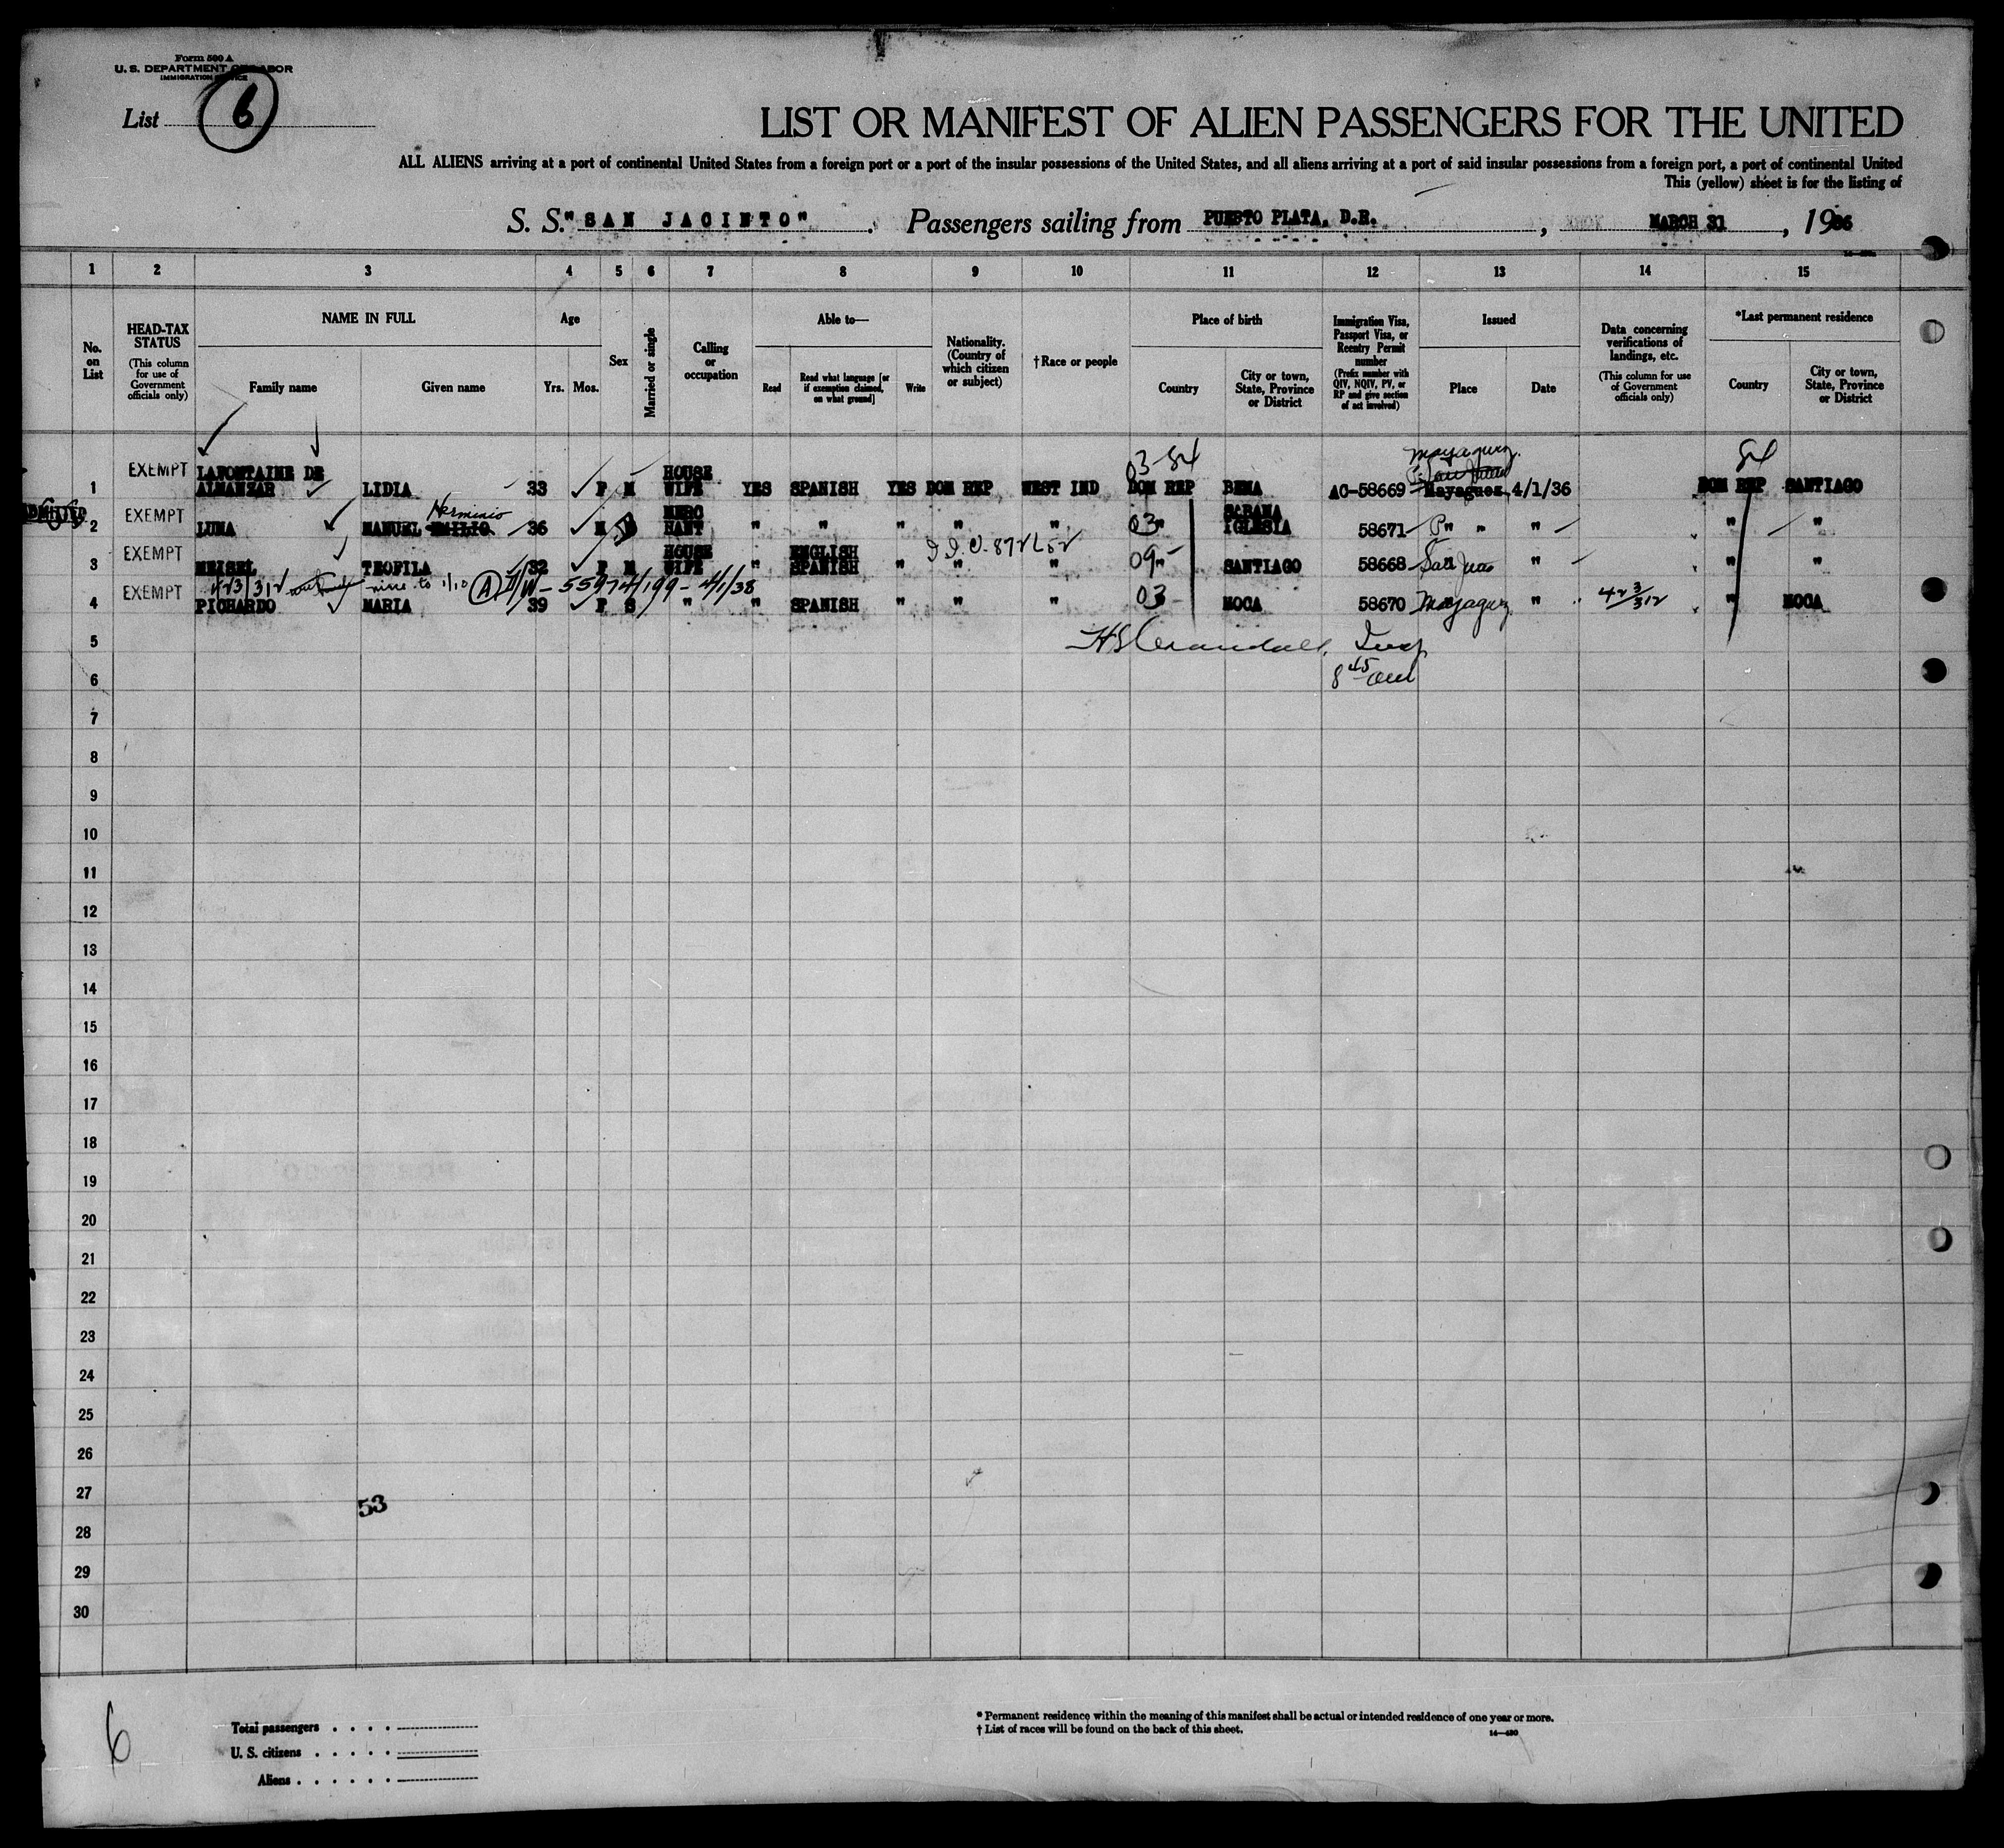 Form 500 A
U. S. DEPARTMENT OF LABOR
IMMIGRATION SERVICE
List 6
LIST OR MANIFEST OF ALIEN PASSENGERS FOR THE UNITED
ALL ALIENS arriving at a port of continental United States from a foreign port or a port of the insular possessions of the United States, and all aliens arriving at a port of said insular possessions from a foreign port, a port of continental United
This (yellow) sheet is for the listing of
S. S. "SAN JACINTO". Passengers sailing from PUERTO PLATA, D.R., MARCH 31, 1936
1 2 3 4 5 6 7 8 9 10 11 12 13 14 15
No. on List
HEAD-TAX STATUS (This column for use of Government officials only)
NAME IN FULL
Family name Given name
Age
Yrs. Mos.
Sex
Married or single
Calling or occupation
Able to—
Read Read what language [or if exemption claimed, on what ground] Write
Nationality. (Country of which citizen or subject)
†Race or people
Place of birth
Country City or town, State, Province or District
Immigration Visa, Passport Visa, or Reentry Permit number (Prefix number with QIV, NQIV, PV, or RP and give section of act involved)
Issued
Place Date
Data concerning verifications of landings, etc. (This column for use of Government officials only)
*Last permanent residence
Country City or town, State, Province or District
03-84 Mayaguez. 84
San Juan
1 EXEMPT LAFONTAINE DE ALMANZAR LIDIA 33 F M HOUSE WIFE YES SPANISH YES DOM REP WEST IND DOM REP BEMA AC-58669 Mayaguez 4/1/36 DOM REP SANTIAGO
ADMITTED
Herminio
2 EXEMPT LUNA MANUEL EMILIO 36 M S MERC HANT " " " " " 03 " SABANA IGLESIA 58671 P" " " " "
3 EXEMPT MEISEL TEOFILA 32 F M HOUSE WIFE " ENGLISH SPANISH " " " 09 " SANTIAGO 58668 San Juan " " "
423/312 1/10 (A) 55974/199 - 4/1/38
4 EXEMPT PICHARDO MARIA 39 F S " " SPANISH " " " 03 MOCA 58670 Mayaguez " 423/312 " MOCA
5 HS Crandall, Insp
6 8 45 am
7
8
9
10
11
12
13
14
15
16
17
18
19
20
21
22
23
24
25
26
27
53
28
29
30
6
Total passengers . . . .
U. S. citizens . . . . .
Aliens . . . . . .
* Permanent residence within the meaning of this manifest shall be actual or intended residence of one year or more.
† List of races will be found on the back of this sheet.
14—430